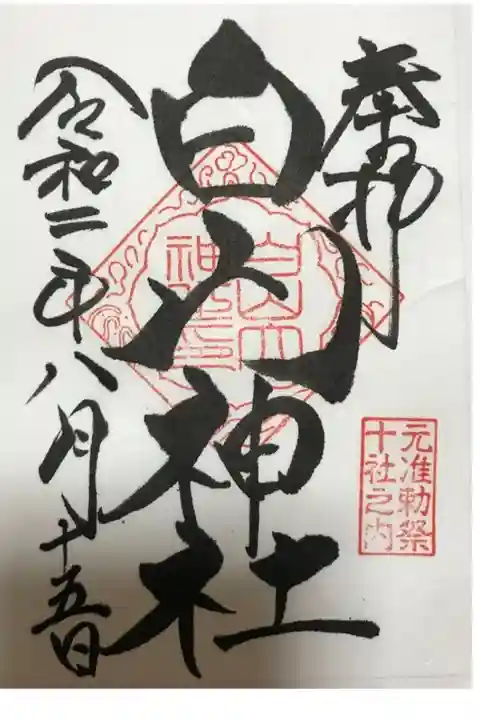 奉拝
元准勅祭
十社之内
白山神社
白山
神社
令和二年八月十五日